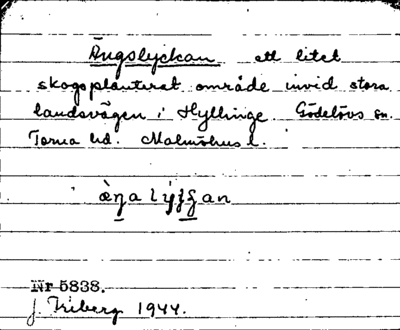 Ängslyckan ett litet
skogsplanterat område invid stora
landsvägen i Hyllinge. Gödelövs sn.
Torna hd. Malmöhus l.
Nr 5838.
J. Friberg 1944.